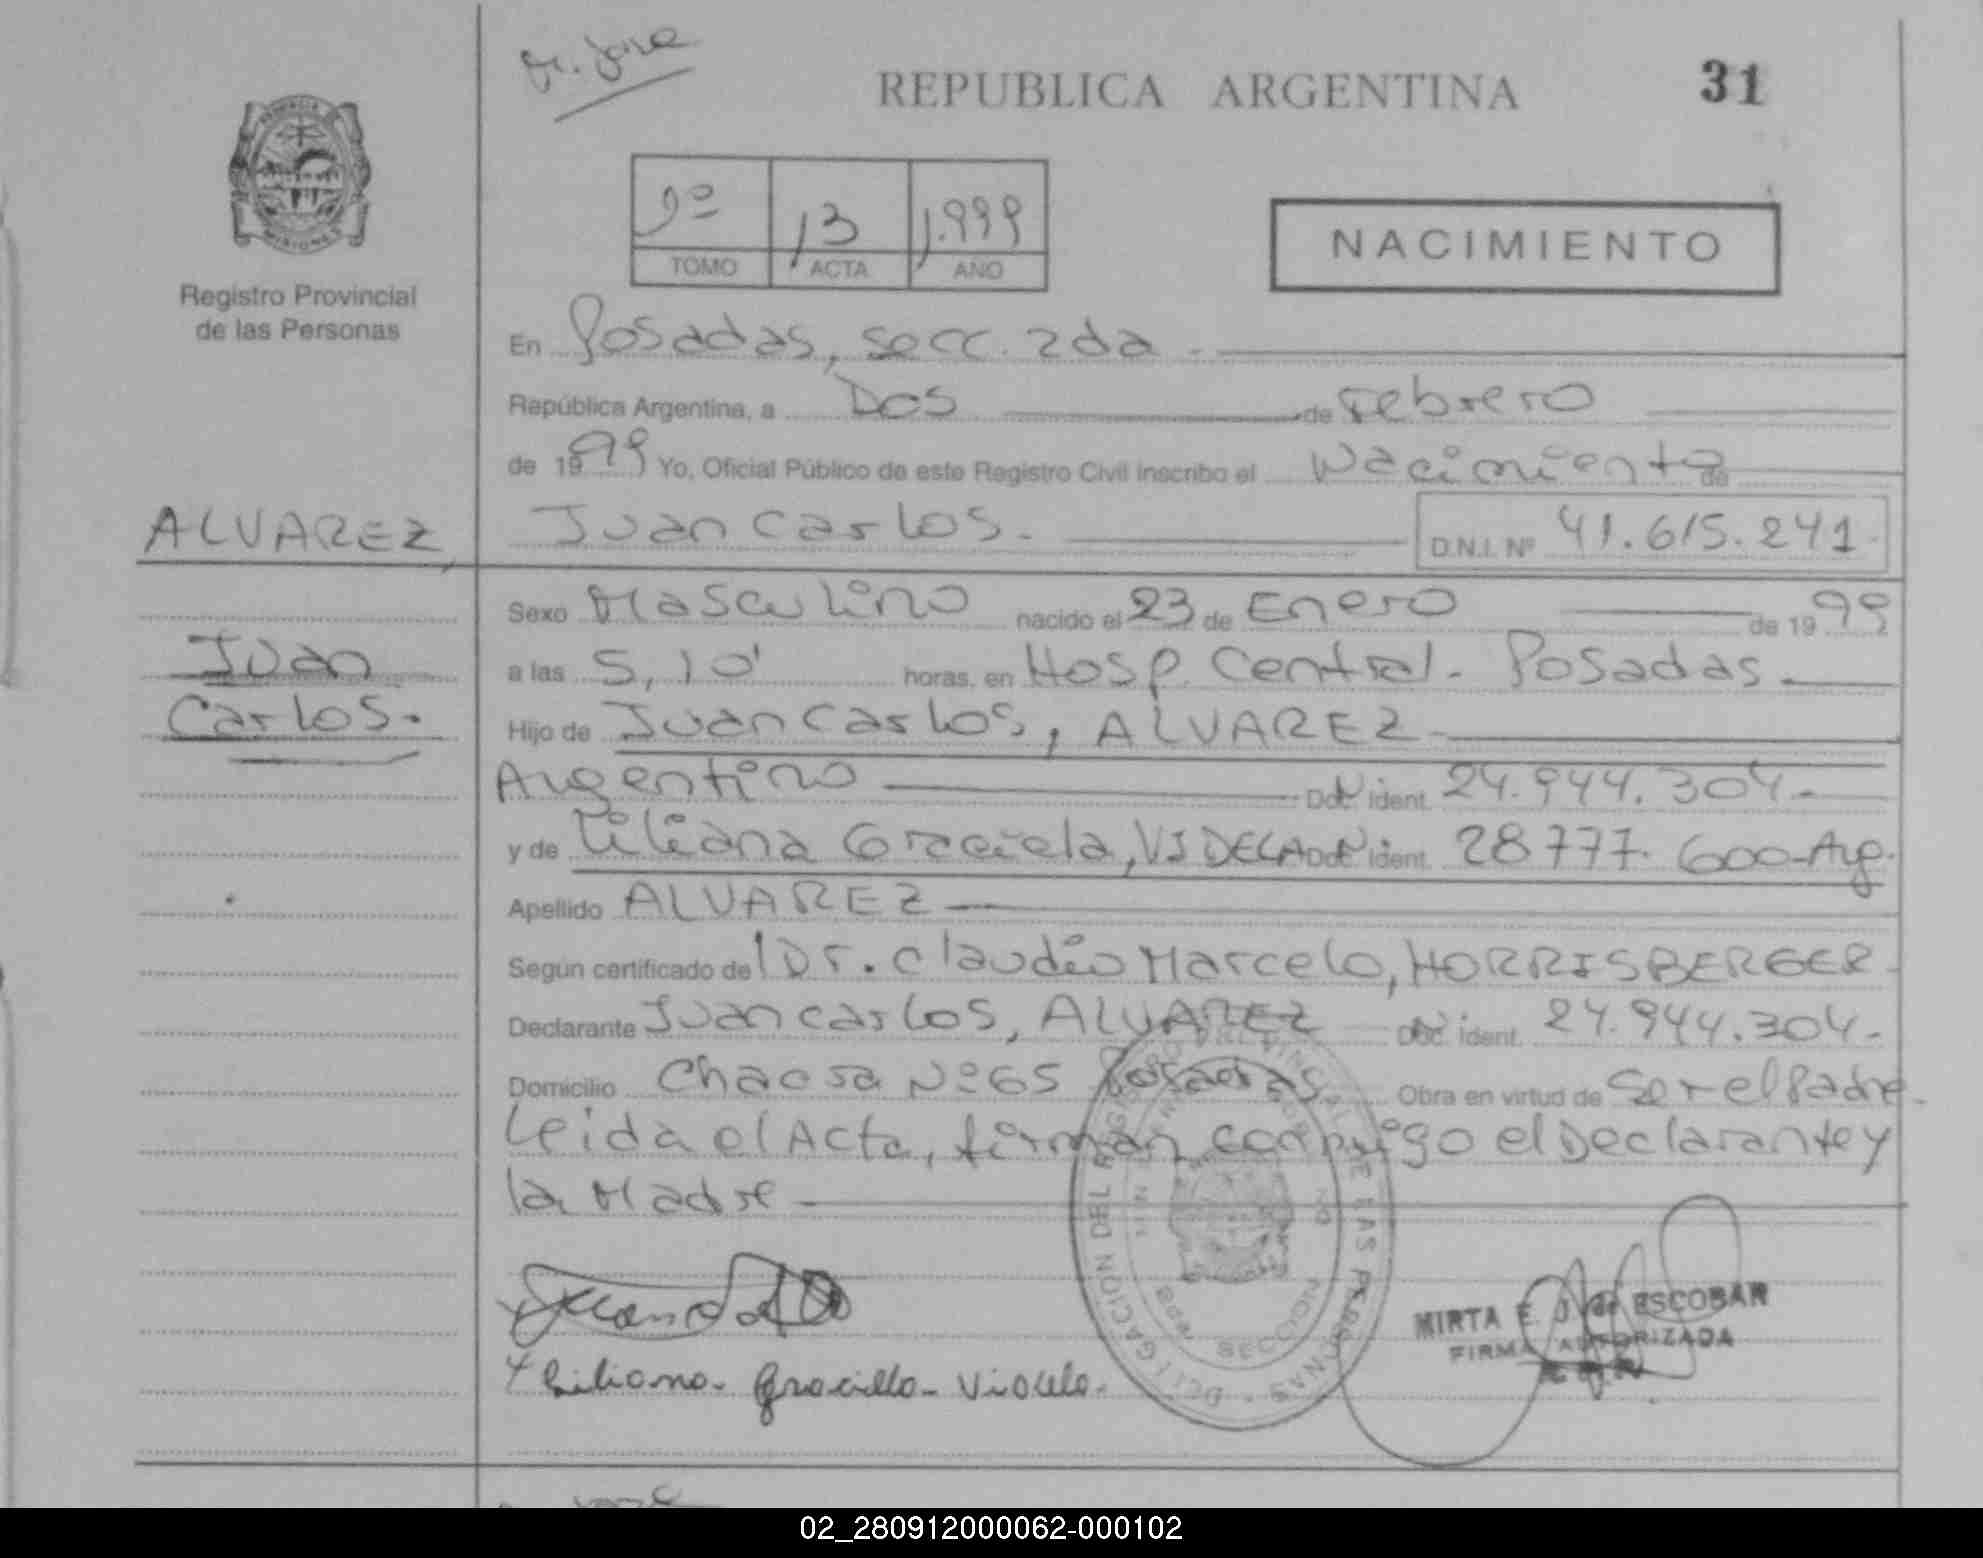 REPUBLICA ARGENTINA
31
1º 13 1.999
TOMO ACTA AÑO
NACIMIENTO
PROVINCIA
MISIONES
Registro Provincial
de las Personas
En Posadas, secc. 2da -
República Argentina, a Dos de Febrero
de 1999 Yo, Oficial Público de este Registro Civil inscribo el Nacimiento de
ALVAREZ, Juan Carlos. - D.N.I. Nº 41.615.241-
Sexo Masculino nacido el 23 de Enero de 1999
Juan
a las 5,10' horas, en Hosp. Central. Posadas.
Carlos.
Hijo de Juan Carlos, ALVAREZ
Argentino Doc. Ident. 24.944.304.-
y de Liliana Graciela, VIDELA Doc. Ident. 28777.600-Arg.
Apellido ALVAREZ
Según certificado del Dr. Claudio Marcelo, HORRISBERGER
Declarante Juan Carlos, ALVAREZ Doc. Ident. 24.944.304.-
Domicilio Chacra Nº 65 Posadas. Obra en virtud de Ser el Padre.
Leida el Acta, firman conmigo el Declarante y
la Madre
DELEGACION DEL REGISTRO PROVINCIAL DE LAS PERSONAS
MIRTA E. J. de ESCOBAR
FIRMA AUTORIZADA
Liliana- Graciella- Videla.
02_280912000062-000102